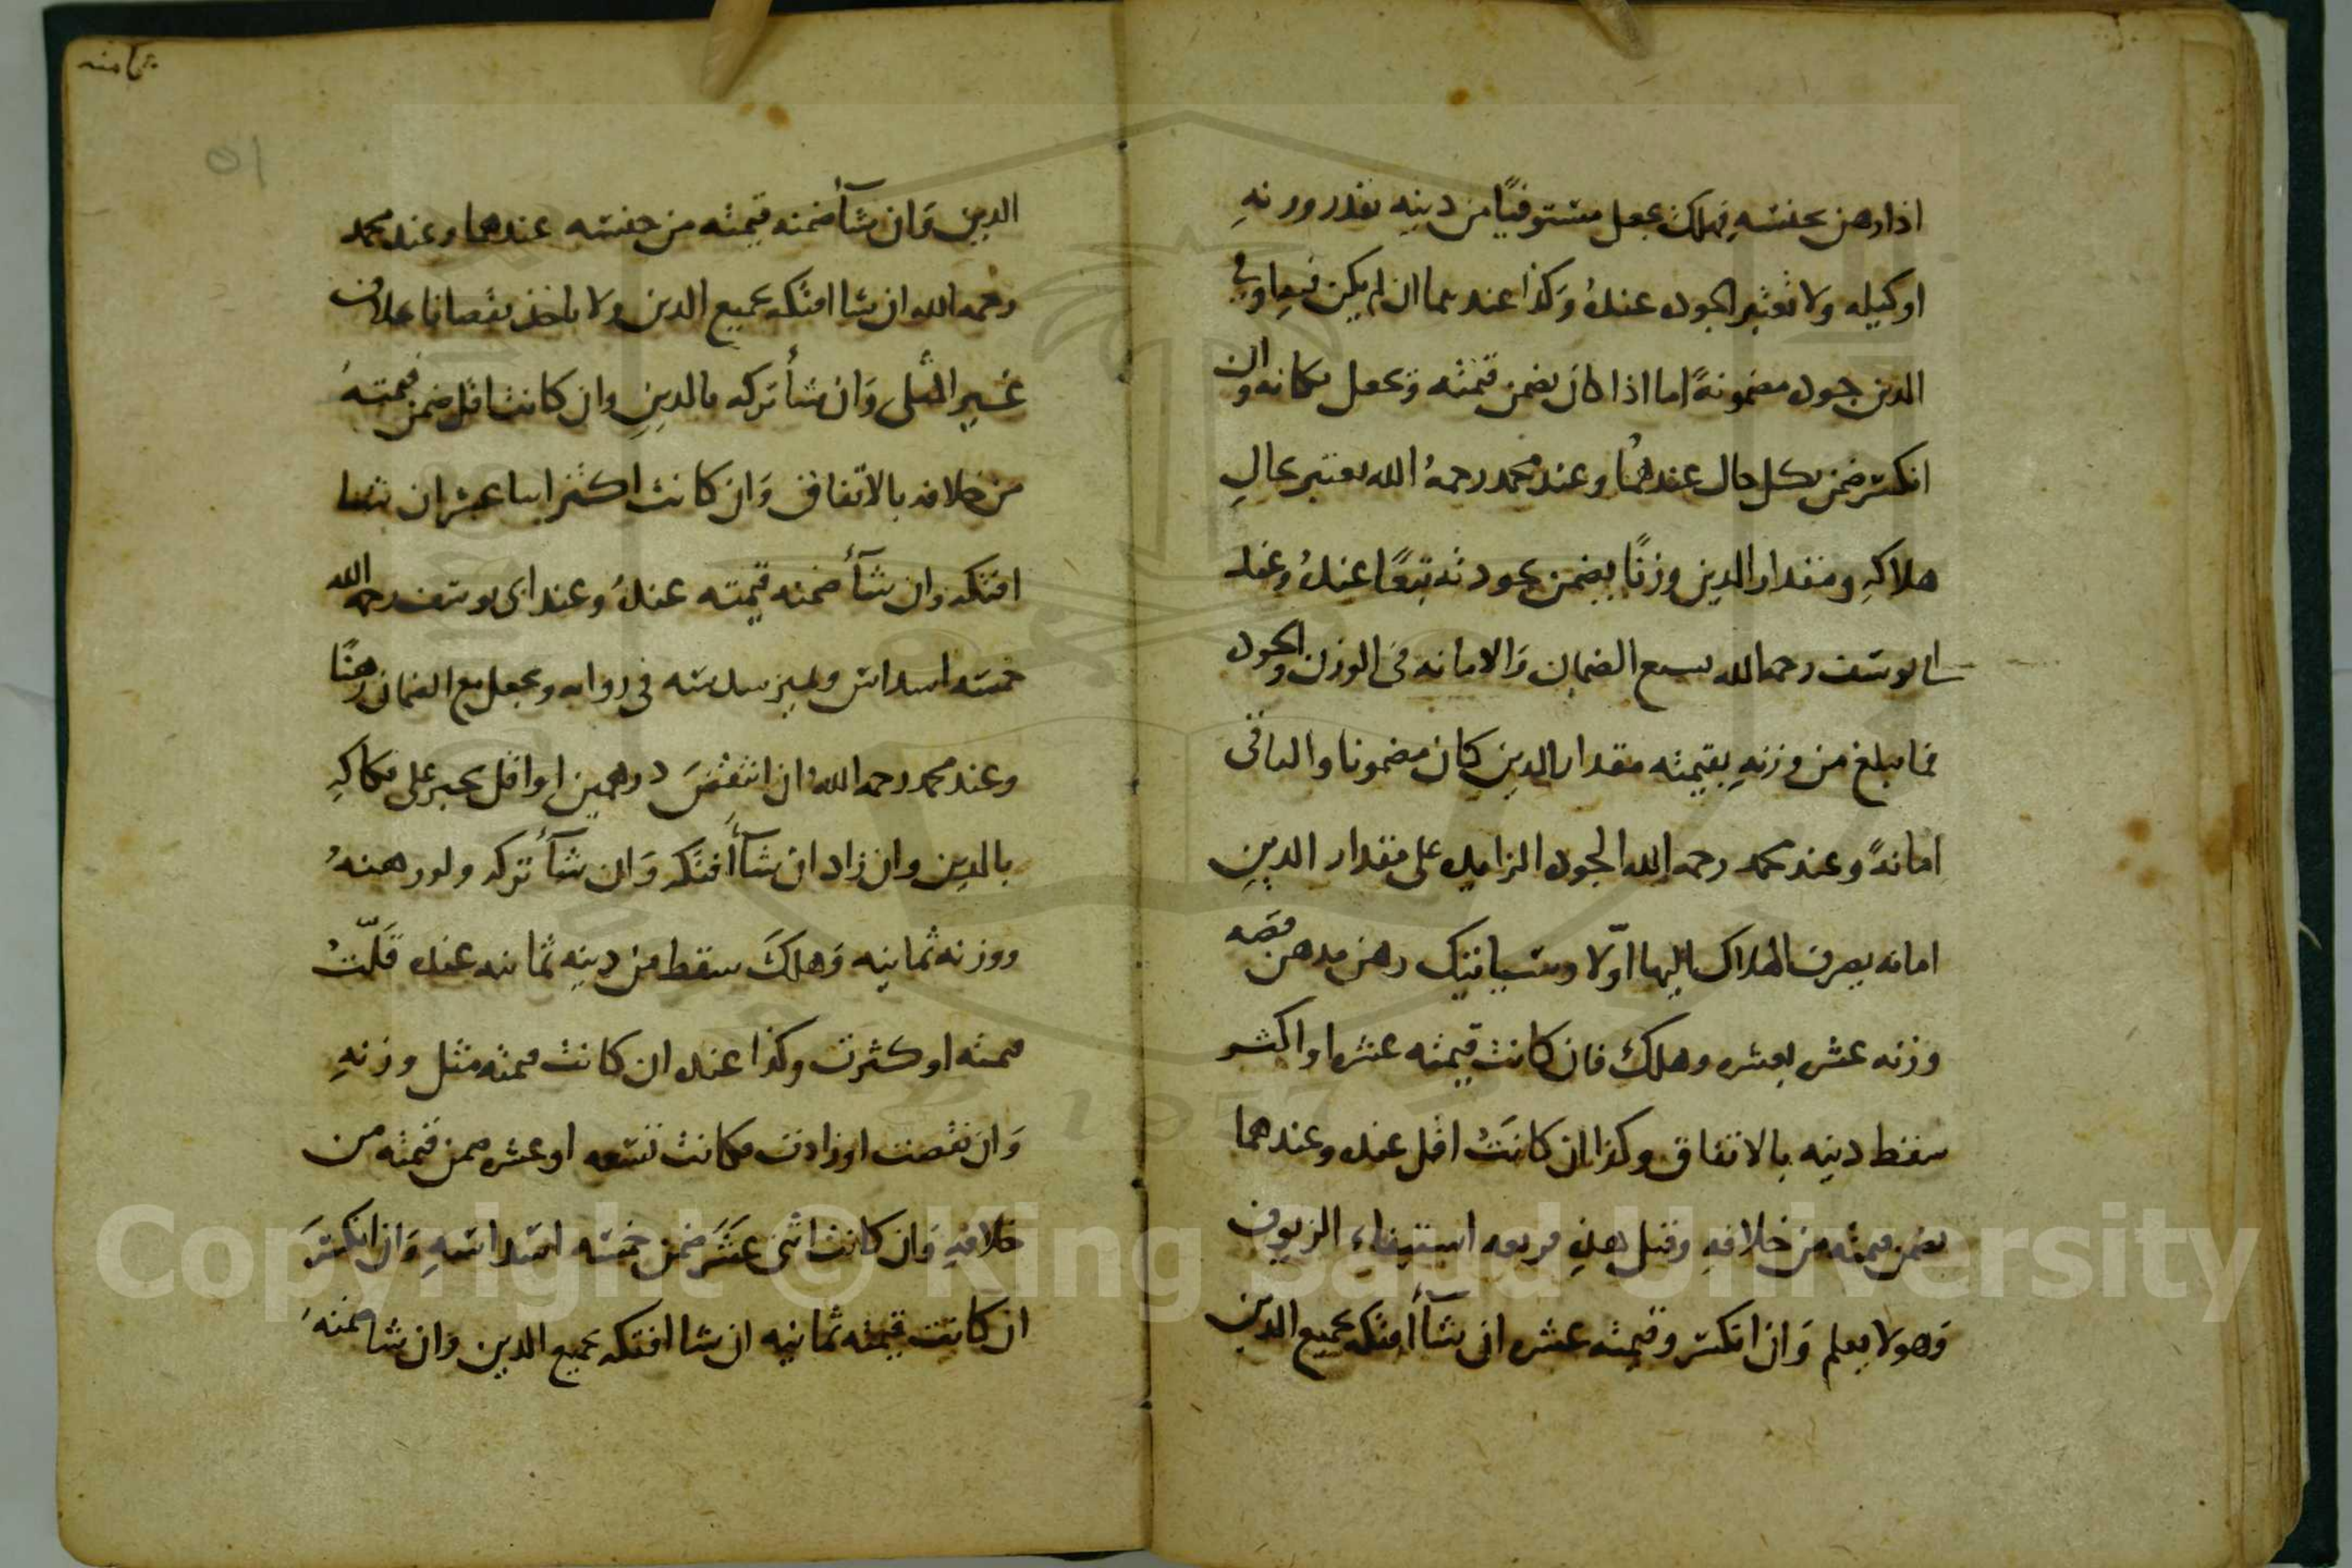 اذا رهن بجنسه فهلك يجعل مستوفيا من دينه بقدر وزنه
او كيله ولا تعتبر الجوده عنده وكذا عندهما ان لم يكن فيها وفي
الدين جوده مضمونة اما اذا كان يضمن قيمته وتجعل مكانه وان
انكسر ضمن بكل حال عندهما وعند محمد رحمه الله يعتبر بحال
هلاكه ومقدار الدين وزنا يضمن بجودته تبعا عنده وعند
ابي يوسف رحمه الله يشيع الضمان والامانه في الوزن والجوده
فما يبلغ من وزنه بقيمته مقدار الدين كان مضمونا والباقي
امانة وعند محمد رحمه الله الجوده الزايده على مقدار الدين
امانه يصرف الهلاك اليها اولا وسيبانيك رهن فضه
وزنه عشره بعشره وهلك فان كانت قيمته عشره او اكثر
سقط دينه بالاتفاق وكذا ان كانت اقل عنده وعندهما
يضمن قيمته من خلافه وقيل هذه فريعه استيفاء الزيوف
وهو لا يعلم وان انكسر وقيمته عشره ان شاء افتكه بجميع الدين
ثامنه
٥١
الدين وان شاء ضمنه قيمته من جنسه عندهما وعند محمد
رحمه الله ان شا افتكه بجميع الدين ولا ياخذ نقصانا بخلاف
غير المثلى وان شاء تركه بالدين وان كانت اقل ضمن قيمته
من خلافه بالاتفاق وان كانت اكثر اثنا عشر ان شا
افتكه وان شاء ضمنه قيمته عنده وعند ابي يوسف رحمه الله
خمسه اسداس ويميز سدسه في روايه ويجعل مع الضمان رهنا
وعند محمد رحمه الله ان انتقص درهمين او اقل يجبر على فكاكه
بالدين وان زاد ان شاء افتكه وان شاء تركه ولو رهنه
ووزنه ثمانيه وهلك سقط من دينه ثمانيه عنده قلت
قيمته او كثرت وكذا عنده ان كانت قيمته مثل وزنه
وان نقصت او زادت فكانت تسعه او عشره ضمن قيمته من
خلافه وان كانت اثنى عشر ضمن خمسه اسداسه وان انكسر
ان كانت قيمته ثمانيه ان شا افتكه بجميع الدين وان شا ضمنه
Copyright © King Saud University
1957